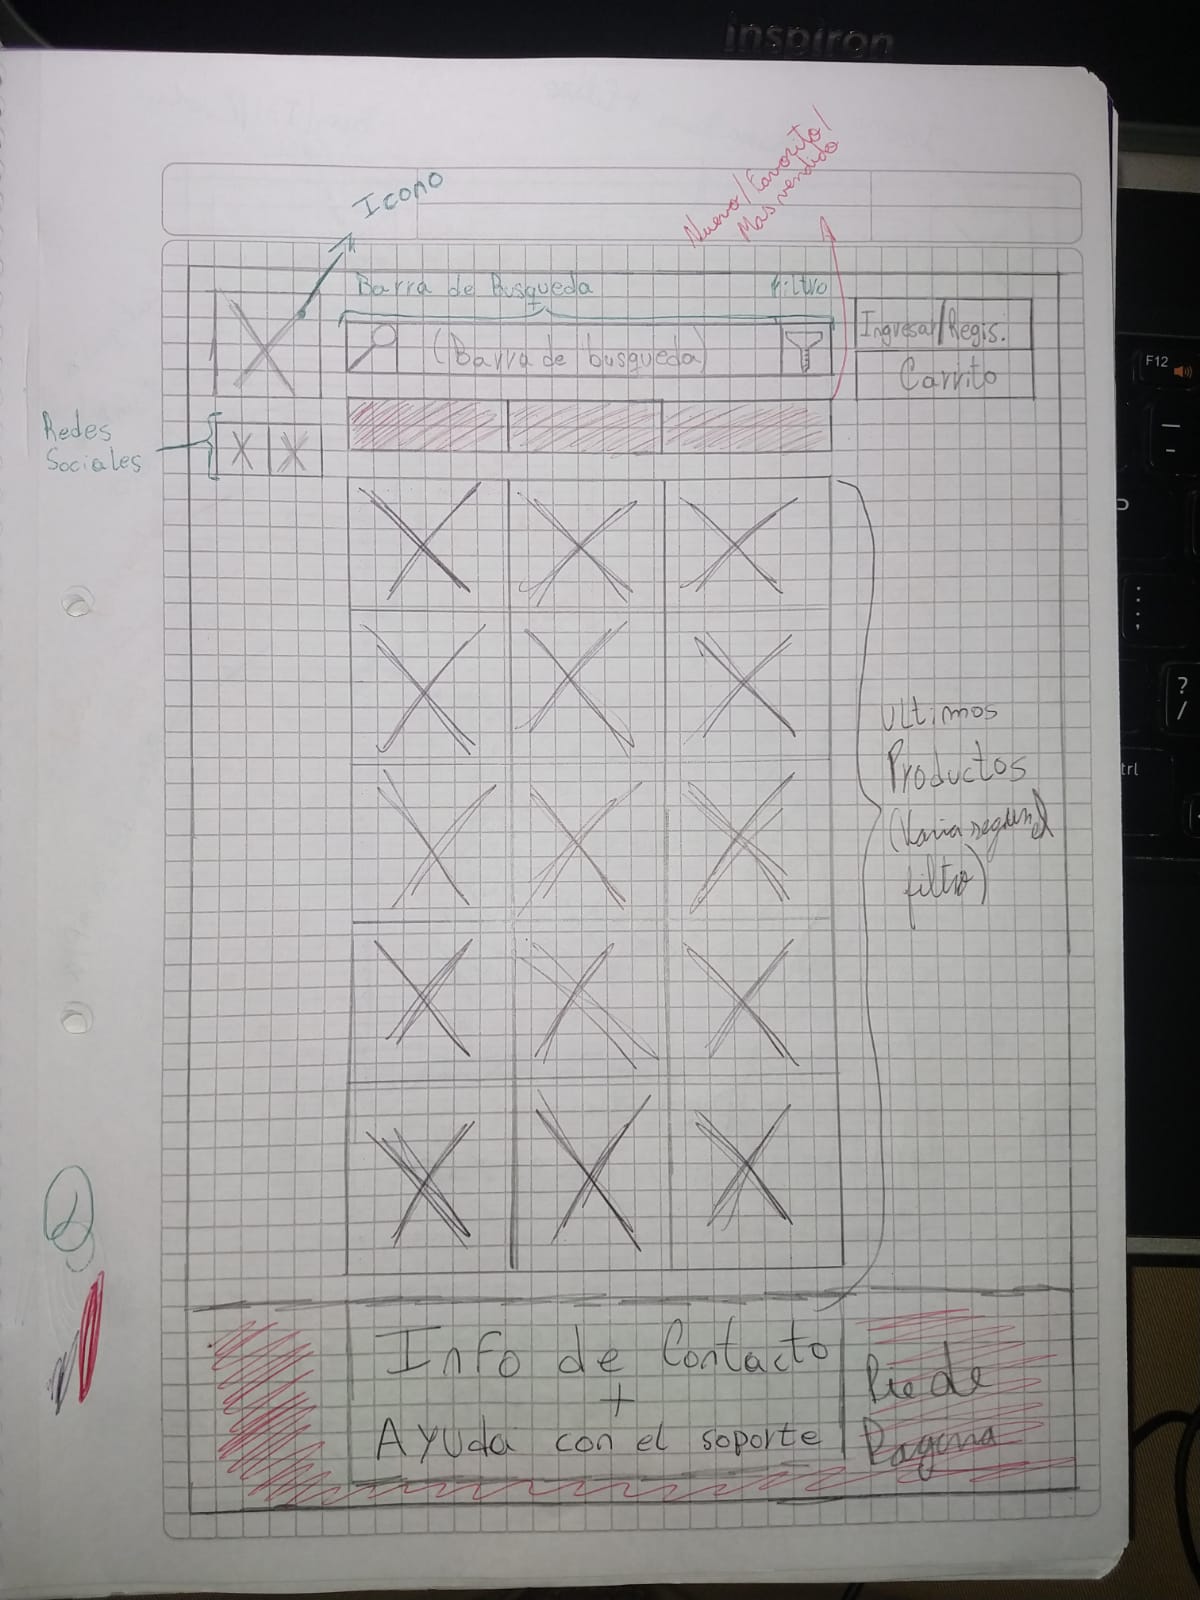 inspiron
Icono
Nuevo/Favorito/
Mas vendido
Barra de Busqueda
filtro
(Barra de busqueda)
Ingresar/Regis.
Carrito
Redes
Sociales
Ultimos
Productos
(Varia segun el
filtro)
Info de Contacto
+
Ayuda con el soporte
Pie de
Pagina
F12
?
/
trl